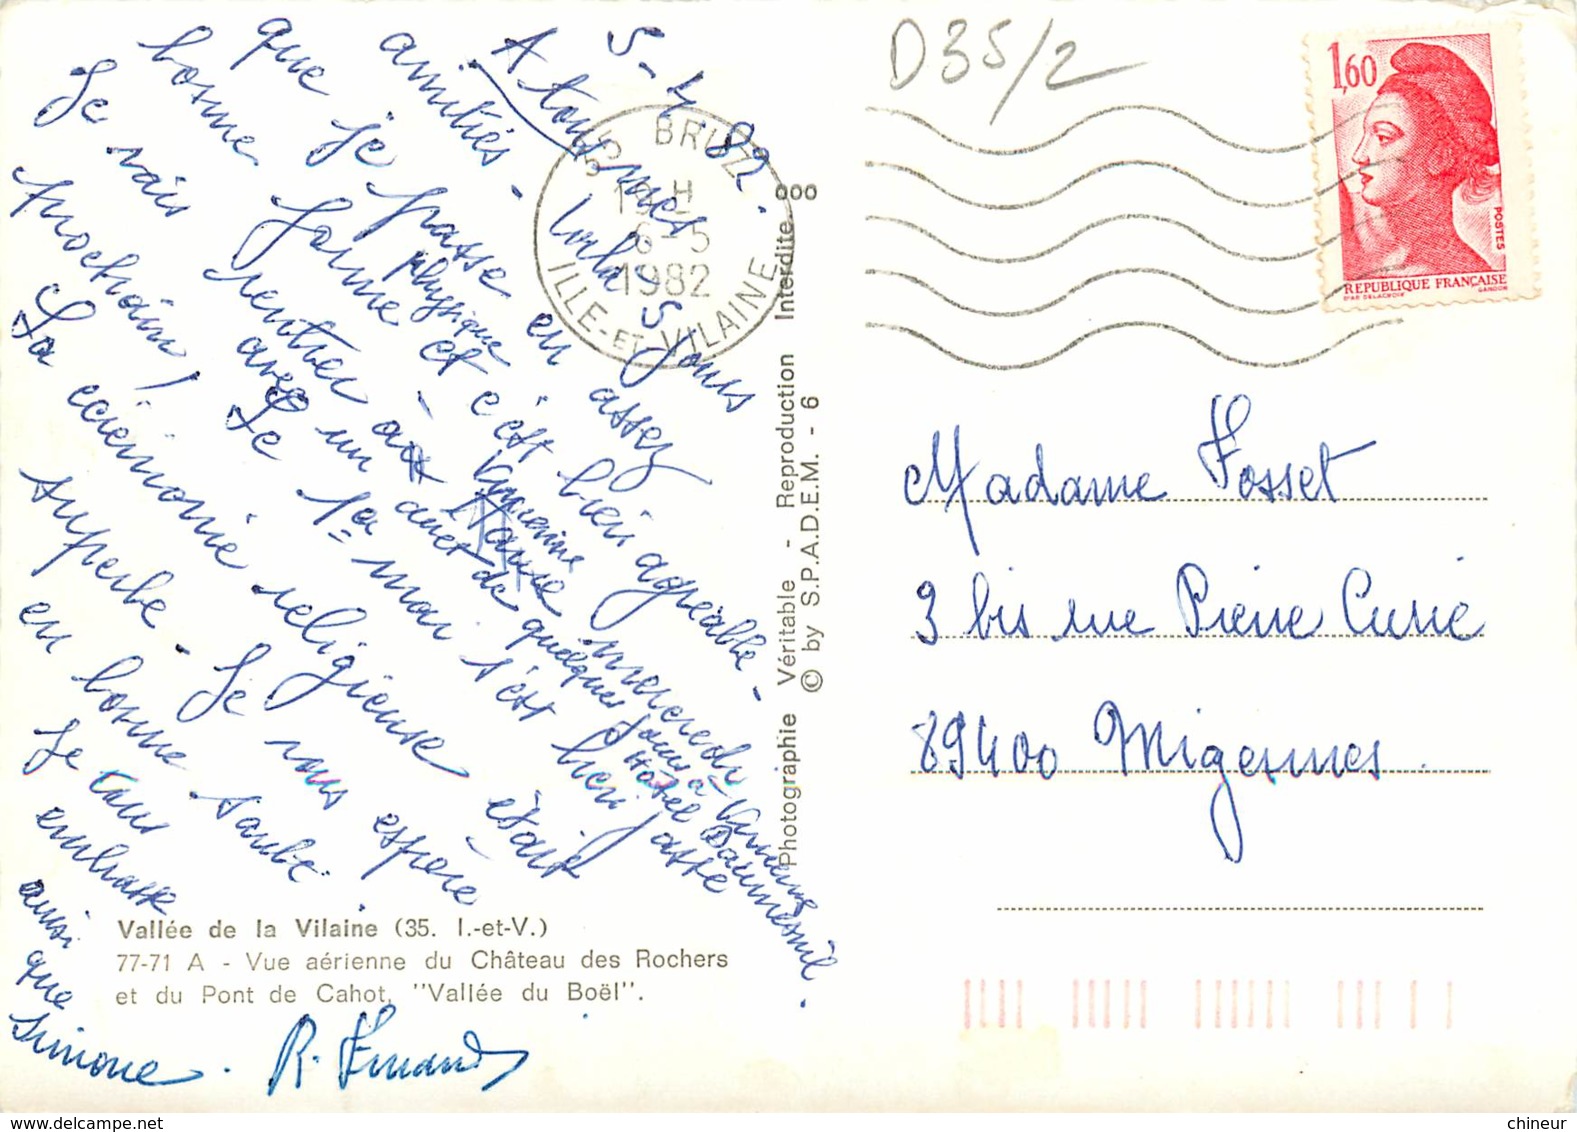 D35/2
5-4-82.
A tous mes
amitiés. Voilà 5 jours
que je passe en assez
bonne forme physique et c'est bien agréable -
Je vais rentrer à Vincennes mercredi
avec un arrêt de quelques jours à Vincennes
Hôtel Daumesnil.
prochain! Le 1er mai s'est bien passé
La cérémonie religieuse était
superbe - Je vous espère
en bonne santé.
Je vous
embrasse
ainsi
que
Simone.
BRUZ
35
19 H
6-5
1982
ILLE-ET-VILAINE
1,60
POSTES
REPUBLIQUE FRANÇAISE
D'AP. DELACROIX
GANDON
Photographie Véritable - Reproduction Interdite ooo
© by S.P.A.D.E.M. - 6
Madame Fosset
3 bis rue Pierre Curie
89400 Migennes.
Vallée de la Vilaine (35. I.-et-V.)
77-71 A - Vue aérienne du Château des Rochers
et du Pont de Cahot, "Vallée du Boël".
chineur